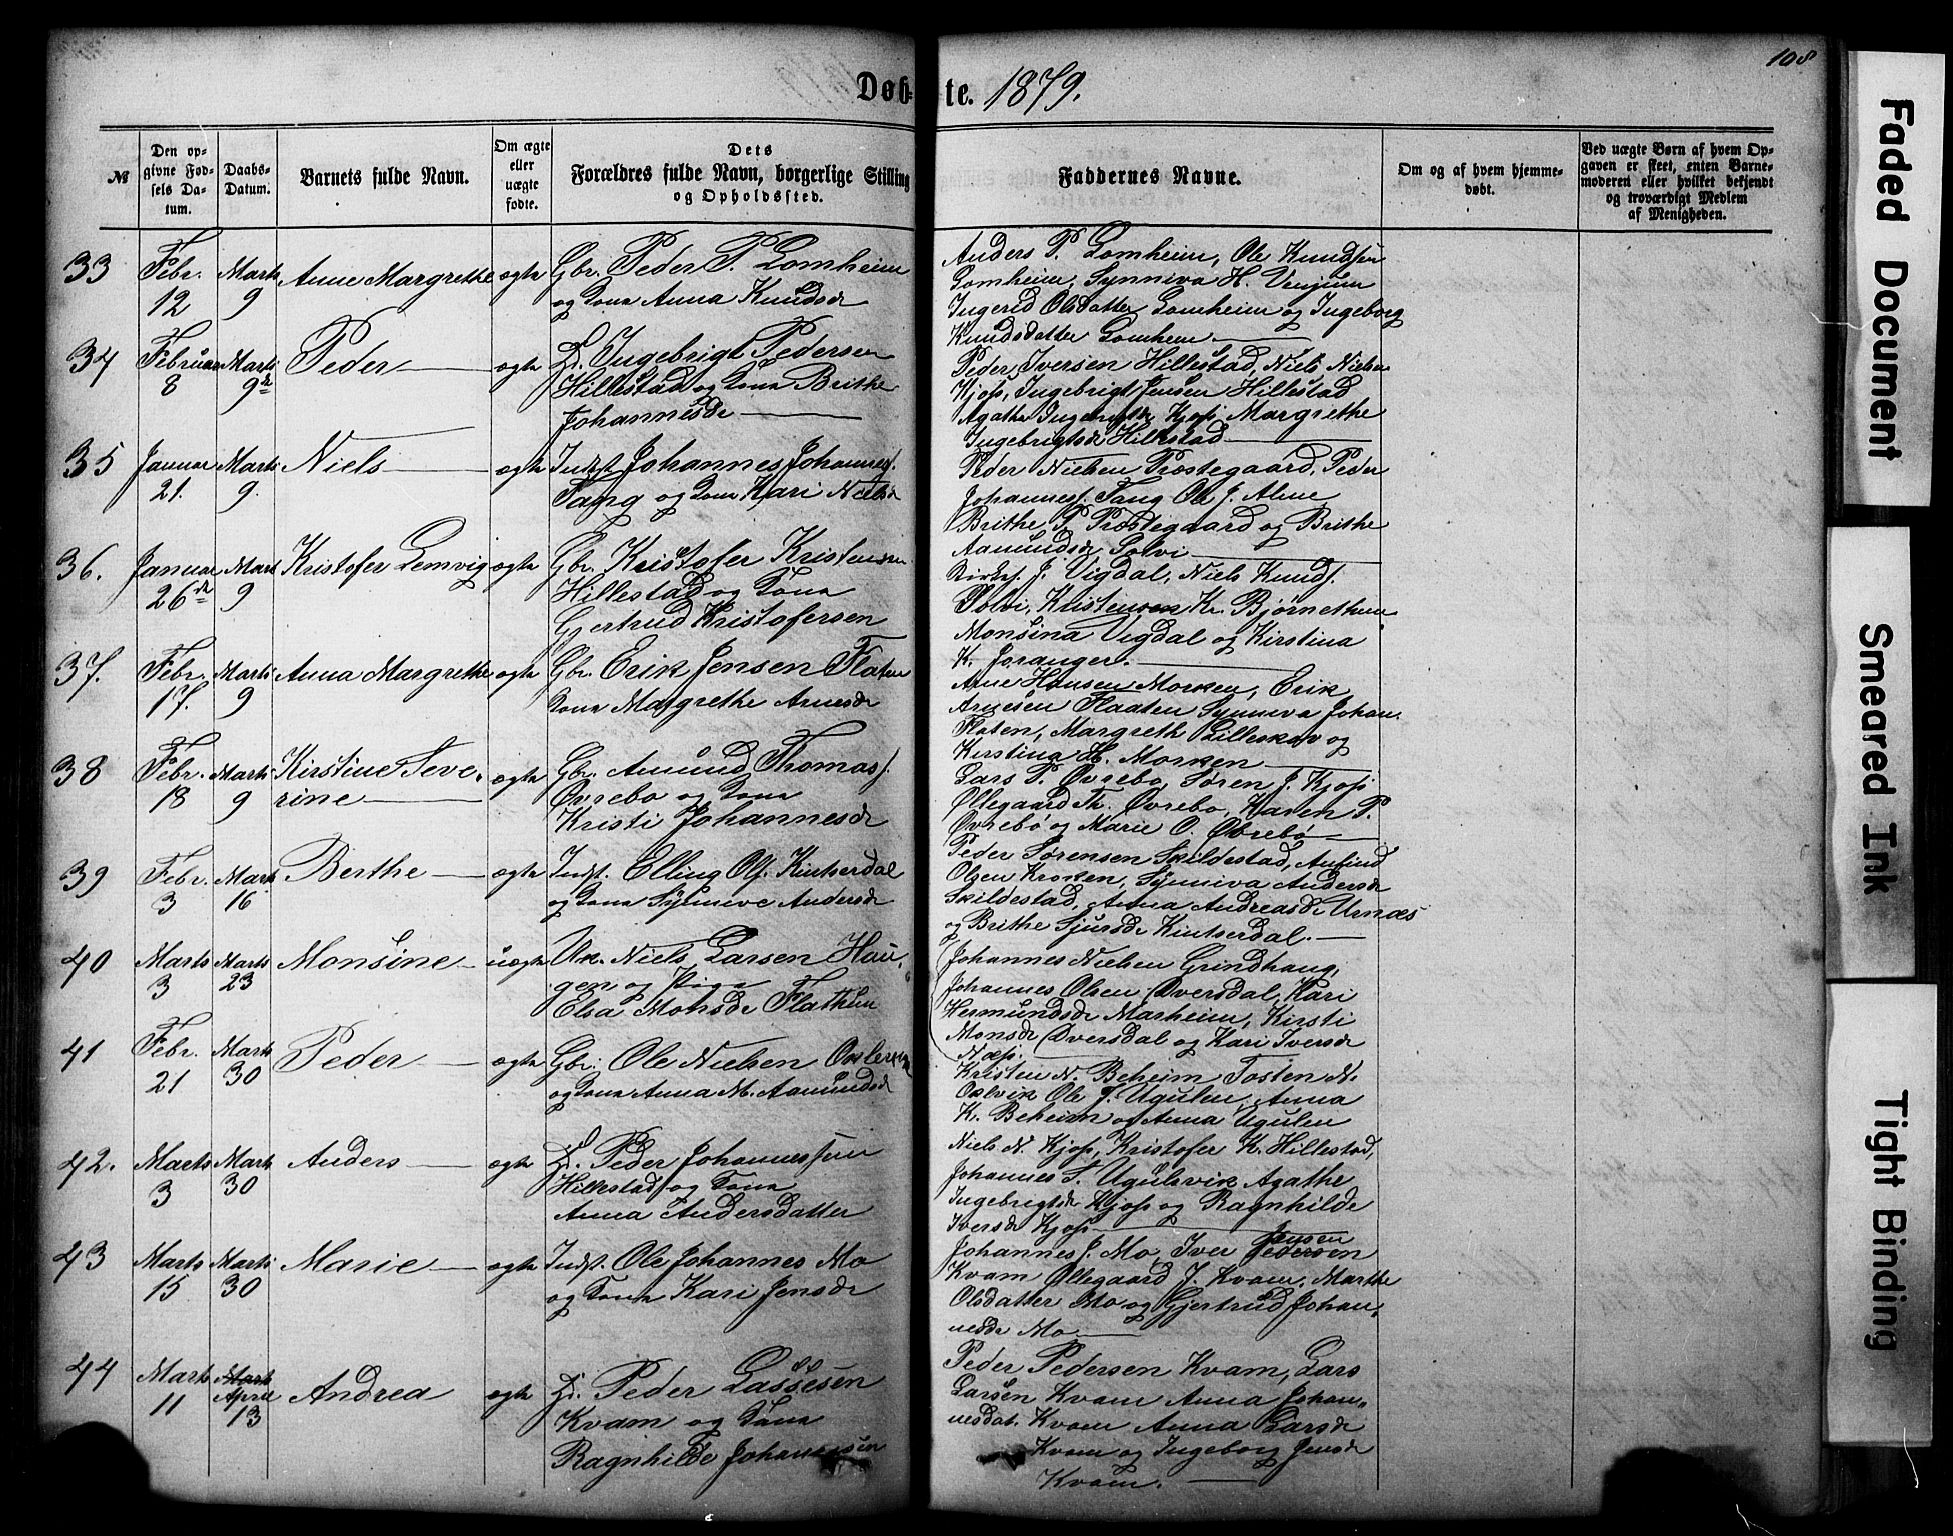 108
Døb-te. 1879.
№
Den opgivne Fødsels Datum.
Daabs-Datum.
Barnets fulde Navn.
Om ægte eller uægte fødte.
Dets Forældres fulde Navn, borgerlige Stilling og Opholdssted.
Faddernes Navne.
Om og af hvem hjemmedøbt.
Ved uægte Børn af hvem Opgaven er skeet, enten Barnemoderen eller hvilket bekjendt og troværdigt Medlem af Menigheden.
33
Febr. 12
Marts 9
Anne Margrethe
ægte
Gbr. Peder P. Lomheim
og Kona Anna Knudsdr
Anders P. Lomheim, Ole Knudsen
Lomheim, Synniva H. Venjum
Ingerid Olsdatter Lomheim og Ingeborg
Knudsdatter Lomheim
34
Februar 8
Marts 9de
Peder
ægte
Ingebrigt Pedersen
Hillestad og Kona Brithe
Johannesdr
Peder Iversen Hillestad, Niels Nielsen
Kjøs, Ingebrigt Jensen Hillestad
Agathe Ingebrigtsdr Kjøs, Margrethe
Ingebrigtsdr Hillestad
35
Januar 21.
Marts 9.
Niels
ægte
Indst. Johannes Johannes.
Fang og Kona Kari Nielsdr
Peder Nielsen Præstegaard, Peder
Johannes. Fang Ole J. Alme
Brithe P. Præstegaard og Brithe
Aamundsdr Solvi
36.
Januar 26de
Marts 9
Kristofer Lemvig
ægte
Gbr. Kristofer Kristensen
Hillestad og Kona
Gjertrud Kristofersen
J. Vigdal, Niels Knuds.
Solvi, Kristensen Kr. Bjørnethun
Monsina Vigdal og Kirstina
K. Joranger.
37.
Febr. 17.
Marts 9
Anna Margrethe
ægte
Gbr. Erik Jensen Flaten
Kona Margrethe Arnesdr
Arne Hansen Morken, Erik
Arnesen Flaaten Synneva Johan.
Flaten, Margreth Lilleskov og
Kirstina H. Morken
38
Febr. 18
Marts 9
Kirstine Seve-
rine
ægte
Gbr. Amund Thomas.
Øvrebø og Kona
Kristi Johannesdr
Lars P. Øvrebø, Søren J. Kjøs
Øllegaard Th. Øvrebø, Karen P.
Øvrebø og Marie O. Øvrebø
39
Febr. 3
Marts 16
Berthe
ægte
Indst. Elling Ols. Kinserdal
og Kona Synneve Andersdr
Peder Sørensen Skildestad, Anfind
Olsen Kroken, Synniva Andersdr
Skildestad, Anna Andreasdr Urnæs
og Brithe Sjursdr Kinserdal.
40
Marts 3
Marts 23
Monsine
uægte
Uk. Niels Larsen Hau-
gen og Pige
Elsa Monsdr Flathun
Johannes Nielsen Grindhaug,
Johannes Olsen Qversdal, Kari
Hermundsdr Marheim, Kirsti
Monsdr Qversdal og Kari Iversdr
Næs.
41
Febr. 21
Marts 30
Peder
ægte
Gbr. Ole Nielsen
og Kona Anna M. Aamundsdr
Kristen N. Beheim Tosten N.
Oxlvik Ole J. Ugulen, Anna
K. Beheim og Anna Ugulen
42.
Marts 3
Marts 30
Anders
ægte
Peder Johannessen
Hillestad og Kona
Anna Andersdatter
Niels N. Kjøs, Kristofer K. Hillestad,
Johannes T. Ugulsvik Agathe
Ingebrigtsdr Kjøs og Ragnhilde
Iversdr Kjøs
43
Marts 15
Marts 30
Marie
ægte
Indst. Ole Johannes Mo
og Kona Kari Jensdr
Jensen
Johannes J. Mo, Iver Pedersen
Kvam Øllegaard J. Kvam, Marthe
Olsdatter Mo og Gjertrud Johan-
nesdr Mo
44
Marts 11
Marts April 13
Andrea
ægte
Peder Lassesen
Kvam og Kona
Ragnhilde Johannessen
Peder Pedersen Kvam, Lars
Larsen Kvam Anna Johan-
nesdat. Kvam Anna Larsdr
Kvam og Ingeborg Jensdr
Kvam.
Faded Document
Smeared Ink
Tight Binding